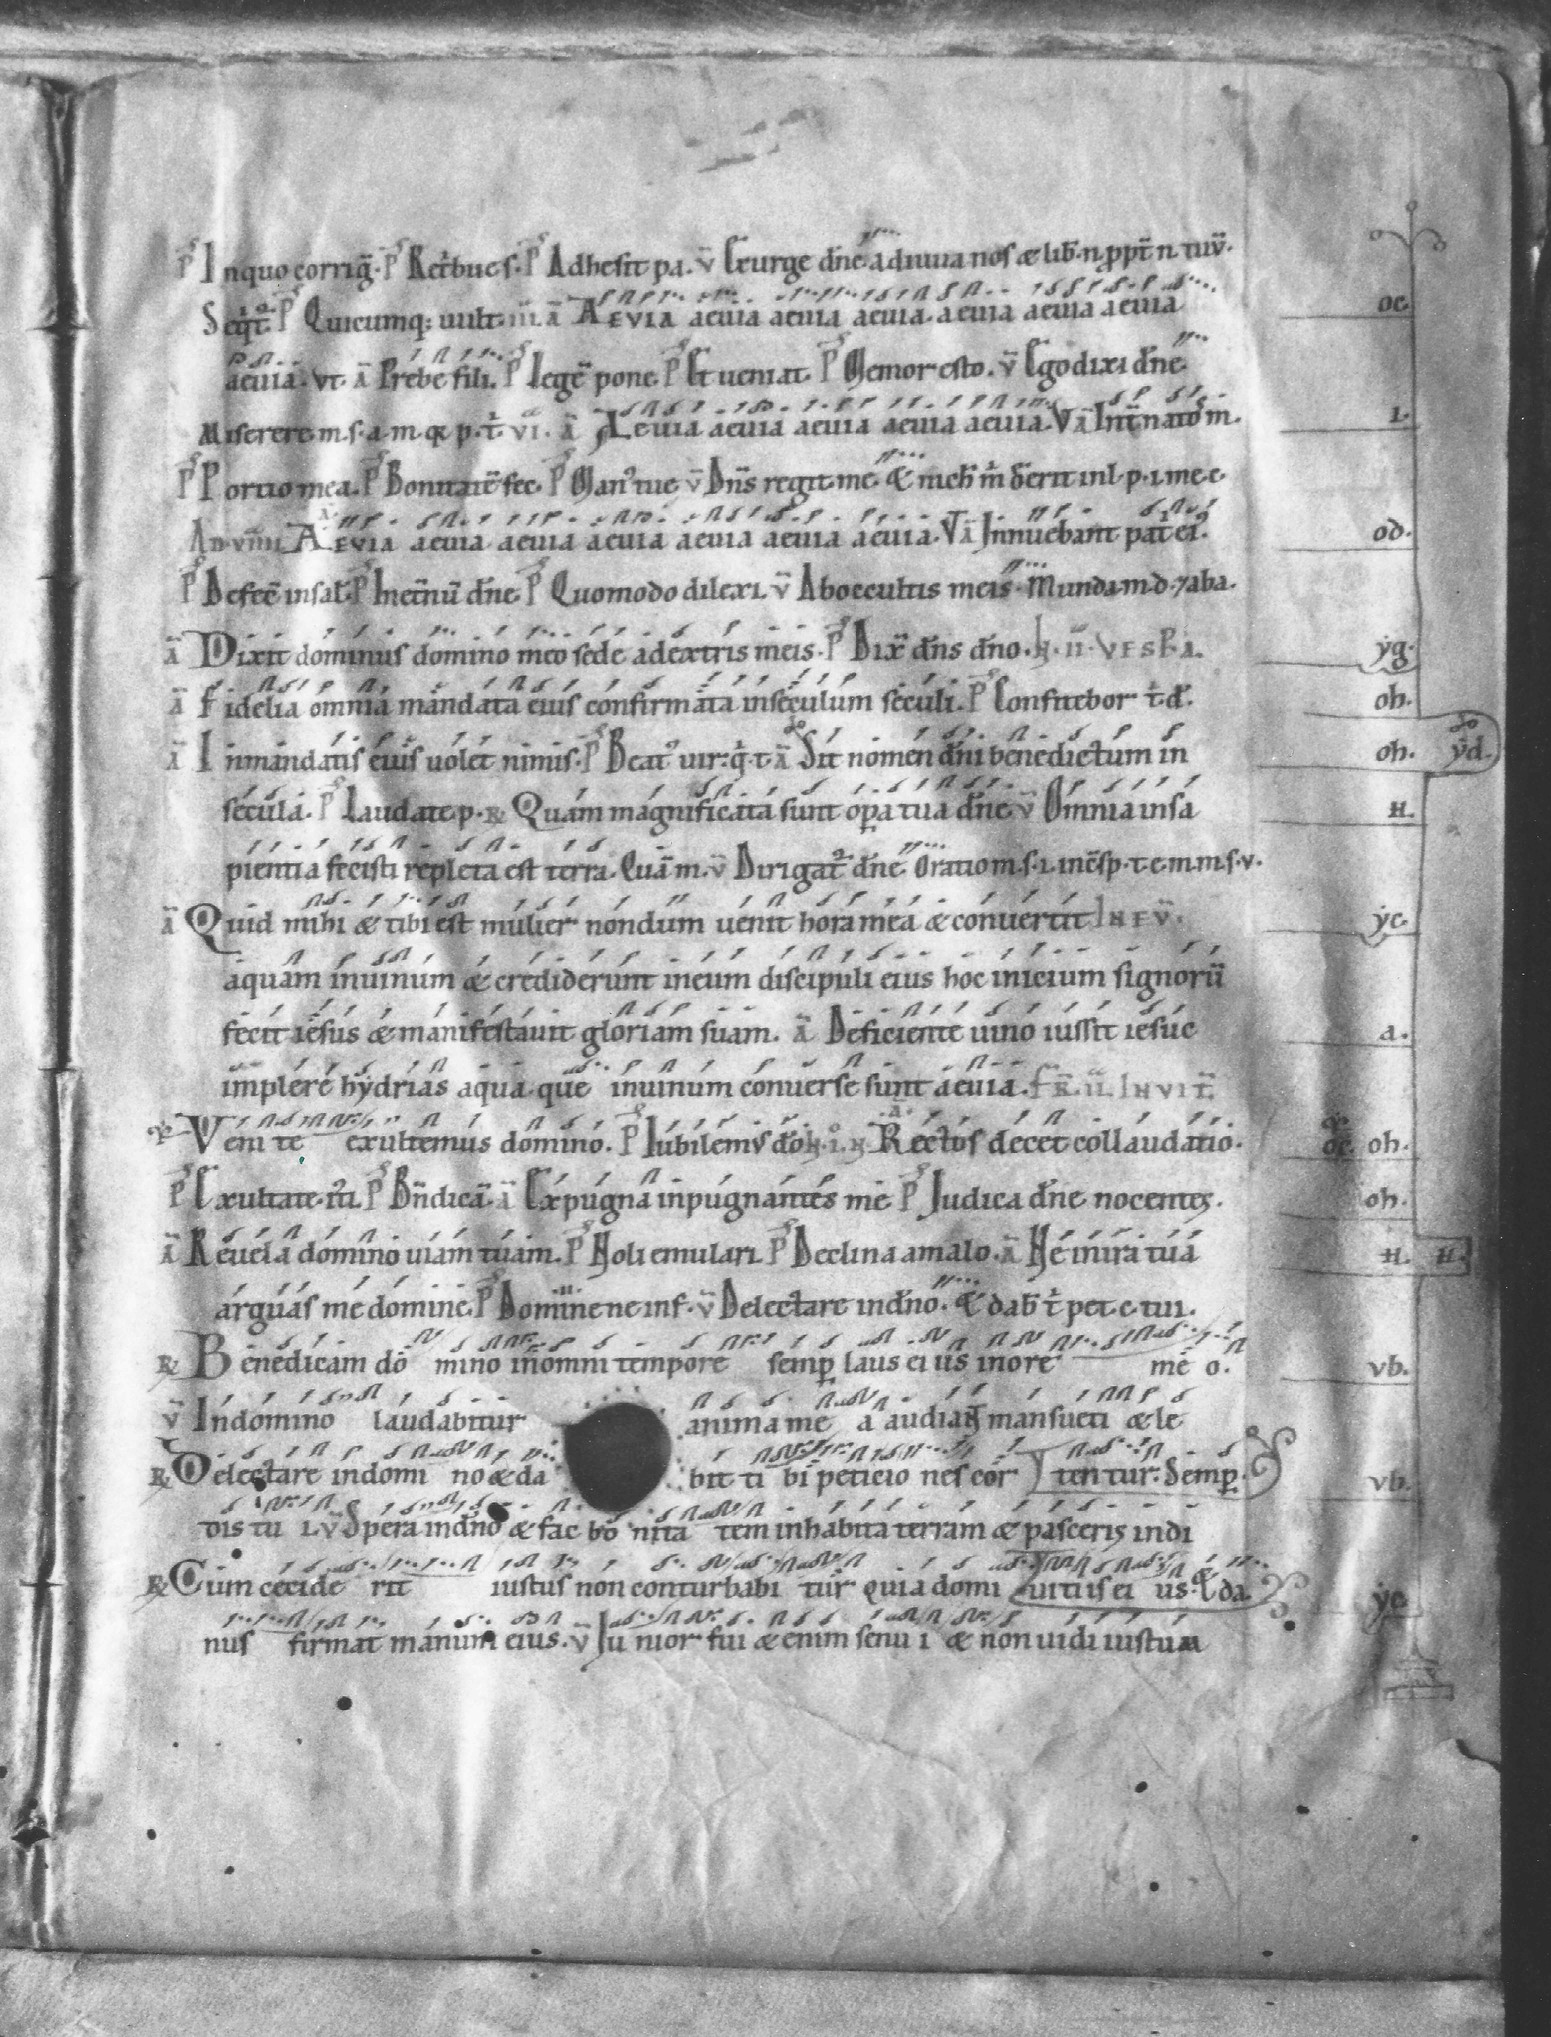 P̄s Inquo corriḡ. P̄s Retˀbue s. P̄s Adhesit pa. v̄ Exurge dn̄e adiuua nos & lib̄. n. ꝓpt̄ n. tuū.
Seqt̄. P̄s Quicumq; uult. iii. ā Aevia aeuia aeuia aeuia aeuia aeuia aeuia
aeuia. vt. ā Prebe fili. P̄s Legē pone. P̄s Et ueniat. P̄s Memor esto. v̄ Ego dixi dn̄e
Miserere. m. s. a. m. q̄ p. t̄. vi. ā Aeuia aeuia aeuia aeuia aeuia. V ā Int̄ natos m.
P̄s Portio mea. P̄s Bonitatē fec. P̄s Manꝰ tue v̄ Dn̄s regit me. & nich̄ m̄ d̄erit inl. p. i. me. c.
Ad viiii. Aevia aeuia aeuia aeuia aeuia aeuia aeuia. V ā Innuebant pat̄i eiꝰ.
P̄s Defec̄ in sal̄. P̄s Inet̄nū dn̄e. P̄s Quomodo dilexi. v̄ Aboccultis meis. Munda. m. d. ⁊ aba.
ā Dixit dominus domino meo sede adextris meis. P̄s Dix̄ dn̄s dn̄o. h. ii. vesp̄a.
ā Fidelia omnia mandata eius confirmata insęculum sęculi. P̄s Confitebor t. d̄.
ā Inmandatis eius uolet nimis. P̄s Beatꝰ uir. q̄. t. ā Sit nomen dn̄i benedictum in
sęcula. P̄s Laudate. p. ℟ Quam magnificata sunt oꝑa tua dn̄e v̄ Omnia insa
pientia fecisti repleta est terra. Quā m. v̄ Dirigat̄ dn̄e. Oratio m. s. i. inc̄sp. t. e. m. m. s. v.
ā Quid mihi & tibi est mulier nondum uenit hora mea & conuertit In Ev̄.
aquam inuinum & crediderunt ineum discipuli eius hoc inicium signorū
fecit iesus & manifestauit gloriam suam. ā Deficiente uino iussit iesuc
implere hydrias aqua que inuinum conuerse sunt aeuia. Fr̄. ii. Invit̄.
Veni te exultemus domino. P̄s Iubilemꝰ dō. h. i. n. Rectos decet collaudatio.
P̄s Exultate. iti. P̄s Bn̄dicā. ā Expugna inpugnantes me P̄s Judica dn̄e nocentes.
ā Reuela domino uiam tuam. P̄s Noli emulari. P̄s Declina amalo. ā Ne in ira tua
arguas me domine. P̄s Domine ne inf. v̄ Delectare indn̄o. & dab̄ t̄ pet. c. tui.
℟ Benedicam do mino inomni tempore semꝑ laus ei us inore me o.
v̄ Indomino laudabitur anima me a audiant mansueti & le
℟ Delectare indomi no & da bit ti bi peticio nes cor tentur. Semꝑ.
dis tu i. v̄ Spera indn̄o & fac bo nita tem inhabita terram & pasceris indi
℟ Cum cecide rit iustus non conturbabi tur quia domi uitiis ei us. Et da.
nus firmat manum eius. v̄ Iu nior fui & enim senu i & non uidi iustum
oc.
i.
od.
yg.
oh.
oh. yd.
H.
yc.
a.
oc. oh.
oh.
H. H.
vb.
vb.
yc.